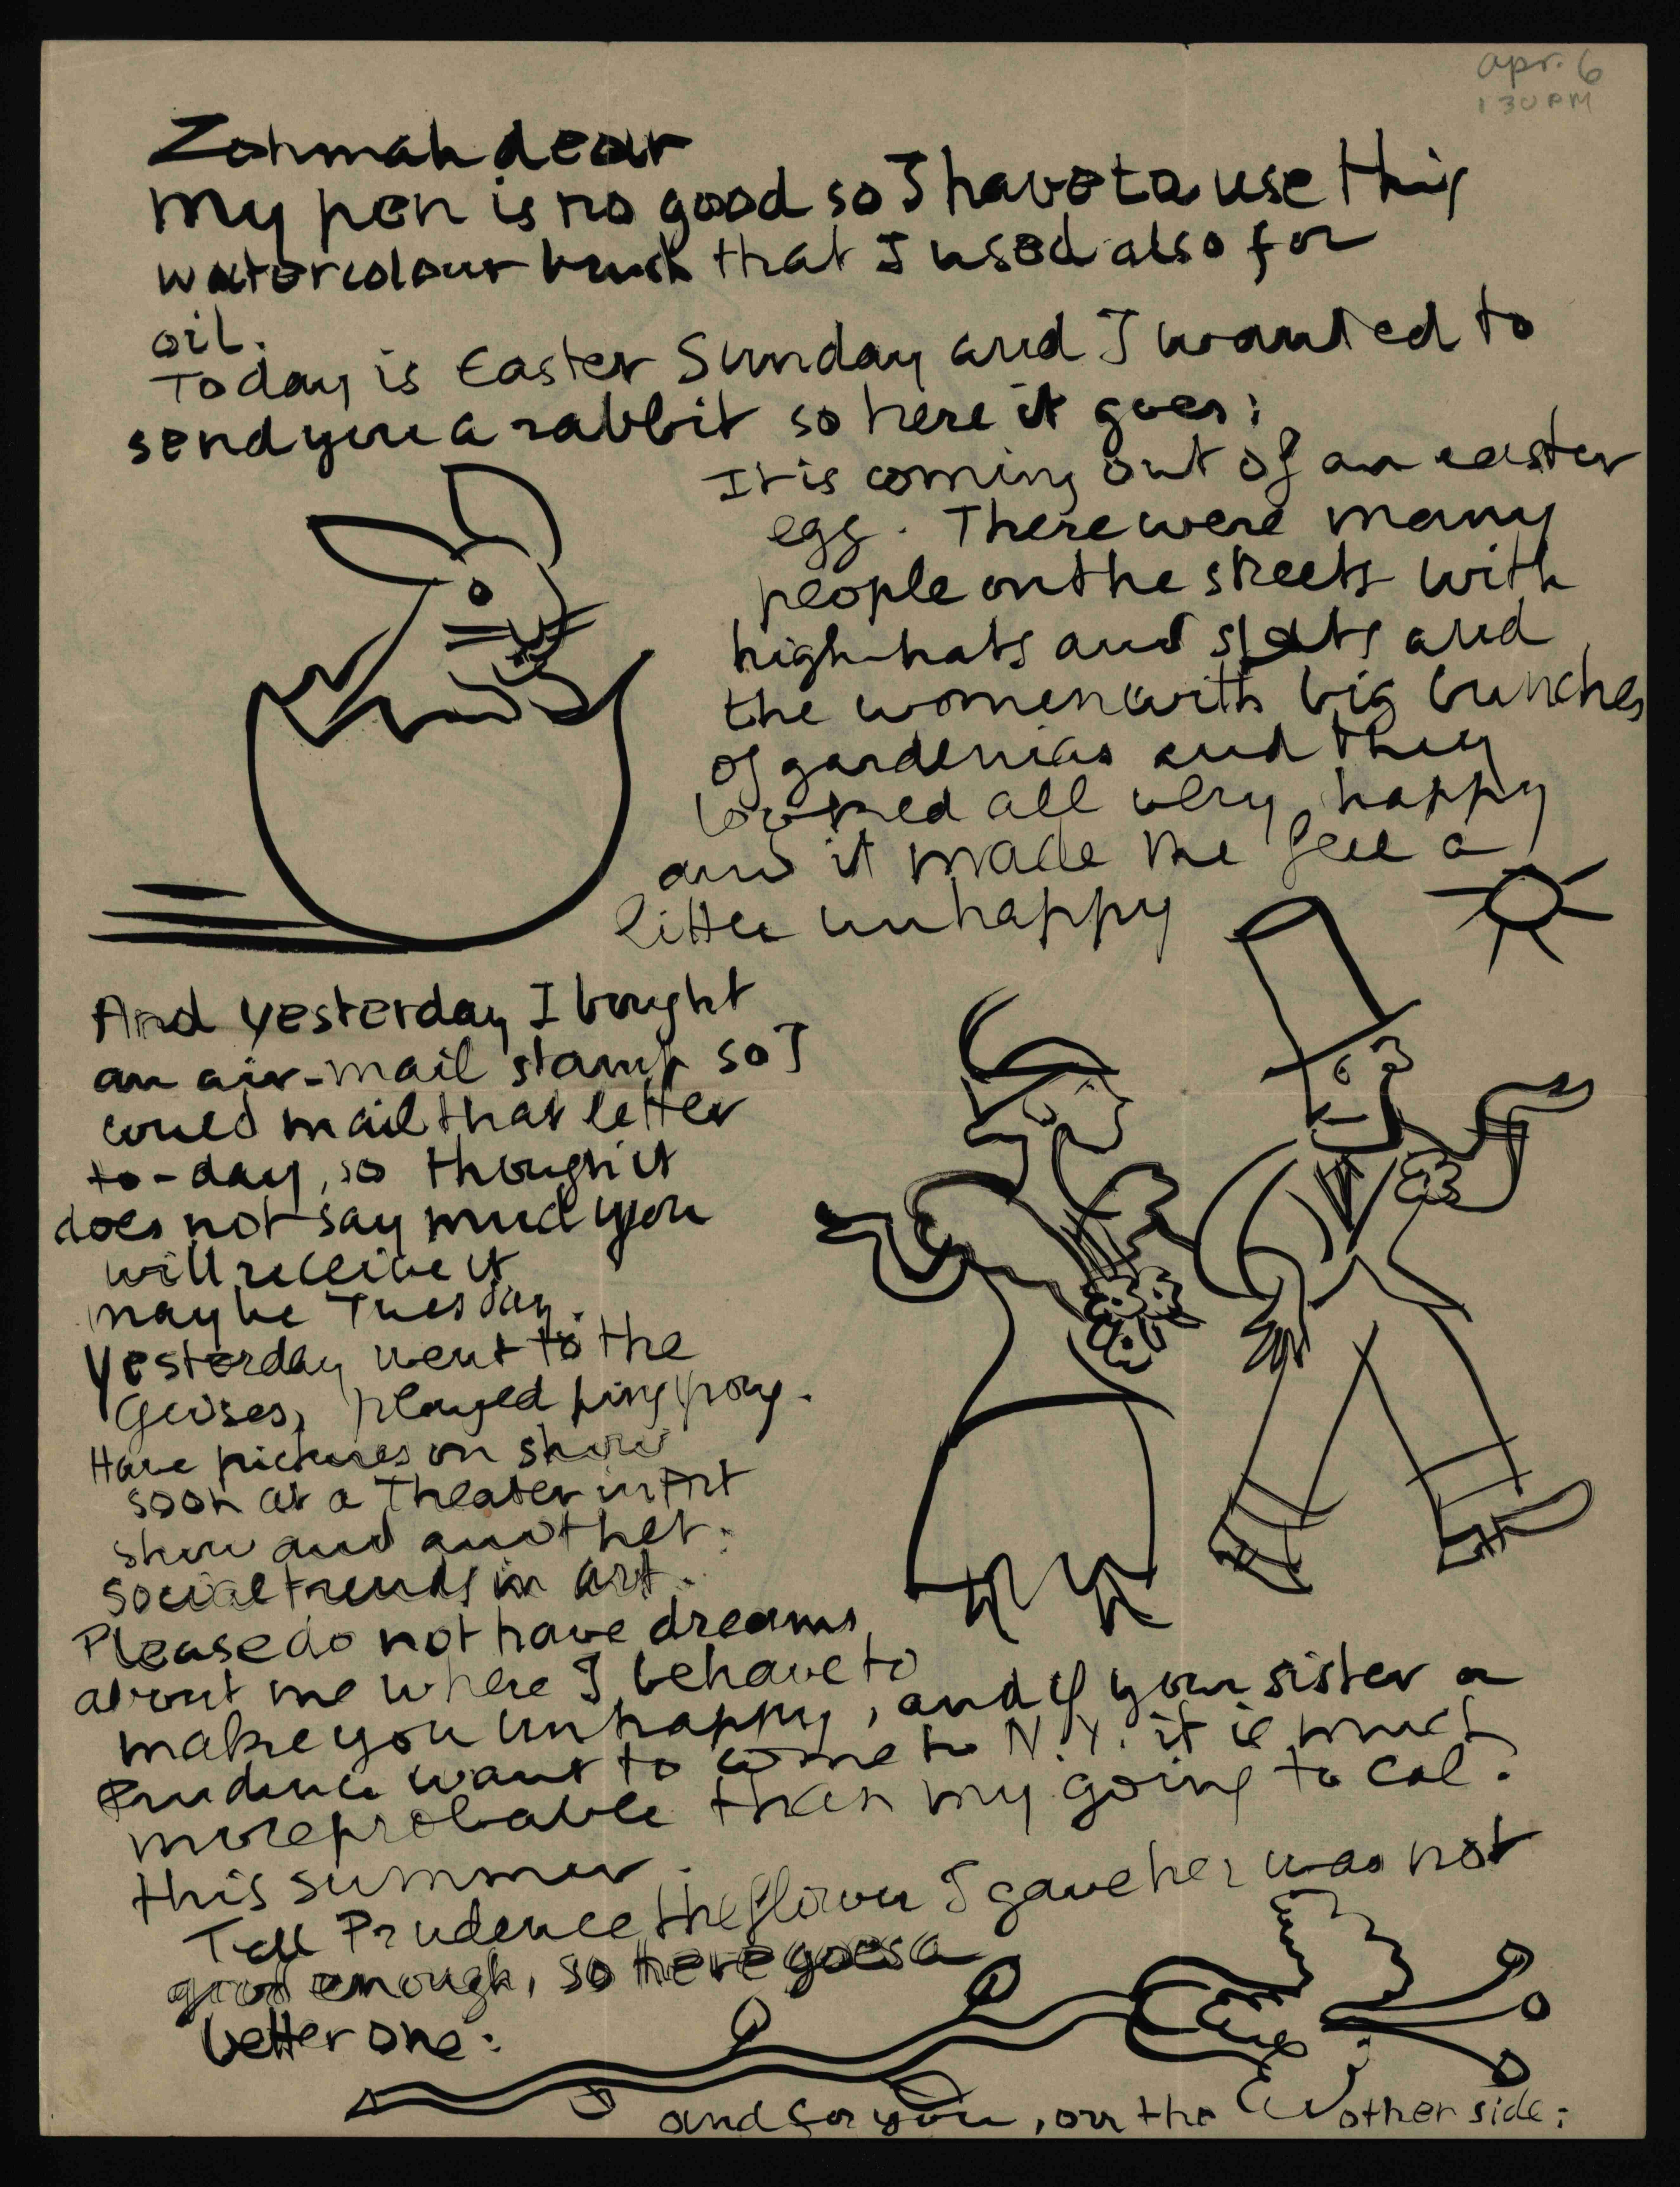 apr. 6
1 30 PM
Zohmah dear
my pen is no good so I have to use this
watercolour brush that I used also for
oil.
Today is Easter Sunday and I wanted to
send you a rabbit so here it goes:
It is coming out of an easter
egg. There were many
people on the streets with
high-hats and spats and
the women with big bunches
of gardenias and they
looked all very happy
and it made me feel a
little unhappy
And yesterday I bought
an air-mail stamp so I
could mail that letter
to-day, so though it
does not say much you
will receive it
maybe Tuesday.
Yesterday went to the
played ping pong.
Have pictures on show
soon at a Theater in Art
show and another:
social trends in art.
Please do not have dreams
about me where I behave to
make you unhappy, and if your sister or
Prudence want to come to N.Y. it is much
more probable than my going to Cal.
this summer.
Tell Prudence the flower I gave her was not
good enough, so here goes a
better one:
and for you, on the other side: